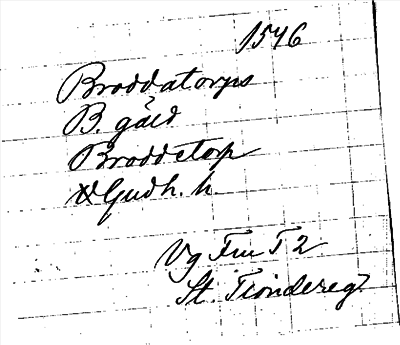 1546
Broddatorps
B. gård
Broddetorp
Gudh. h
Vg Fru T 2
St. Tiondereg.